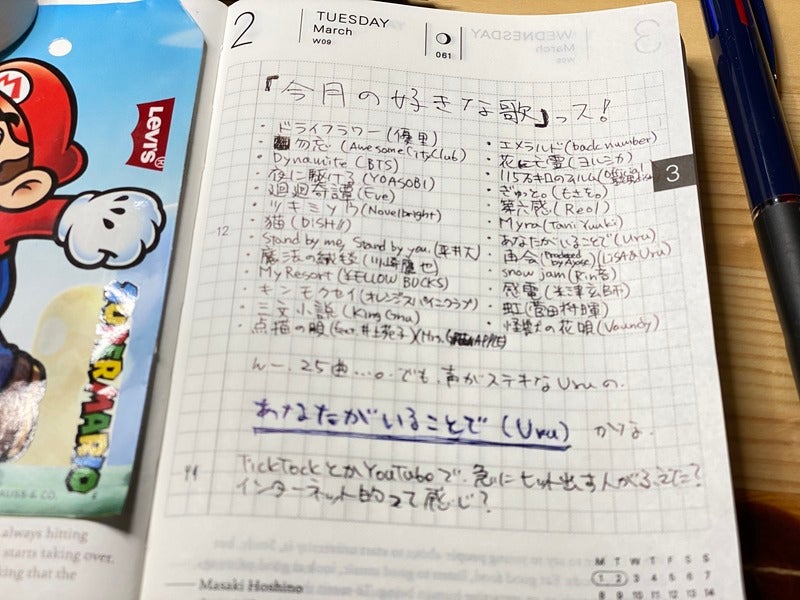 2
TUESDAY
March
W09
061
WEDNESDAY
March
W09
3
LEVI'S
SUPER MARIO
「今月の好きな歌」っス!
・ドライフラワー(優里)
・勿忘(Awesome City Club)
・Dynamite(BTS)
・夜に駆ける(YOASOBI)
・廻廻奇譚(Eve)
・ツキミソウ(Novelbright)
・猫(DISH//)
・Stand by me, Stand by you.(平井大)
・魔法の絨毯(川崎鷹也)
・My Resort(¥ELLOW BUCKS)
・キンモクセイ(オレンジスパイニクラブ)
・三文小説(King Gnu)
・点描の唄(feat.井上苑子)(Mrs. APPLE)
・エメラルド(back number)
・花に亡霊(ヨルシカ)
・115万キロのフィルム(Official髭男dism)
・ぎゅっと。(もさを。)
・第六感(Reol)
・Myra(Tani Yuuki)
・あなたがいることで(Uru)
・再会(Produced by Ayase)(LiSA&Uru)
・snow jam(Rin音)
・感電(米津玄師)
・虹(菅田将暉)
・怪獣の花唄(Vaundy)
3
12
んー、25曲…。でも、声がステキなUruの、
あなたがいることで(Uru) かな。
TickTockとかYouTubeで、急にヒット出す人がふえた?
インターネット的って感じ?
always hitting
starts taking over,
king that the
Masaki Hoshino
M T W T F S S
1 2 3 4 5 6 7
8 9 10 11 12 13 14